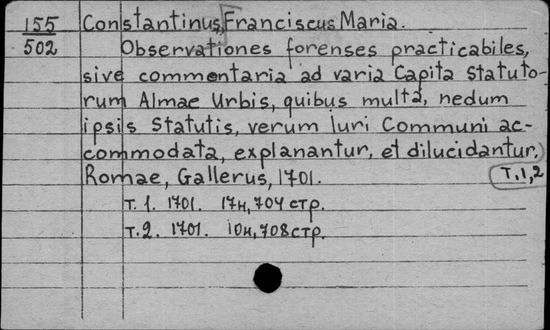 155 Constantinus, Franciscus Maria.
502 Observationes forenses practicabiles,
sive commentaria ad varia Capita Statuto-
rum Almae Urbis, quibus multa, nedum
ipsis Statutis, verum Iuri Communi ac-
commodata, explanantur, et dilucidantur.
Romae, Gallerus, 1701. T.1,2
T. 1. 1701. 17н, 704 стр.
T. 2. 1701. 10н, 708 стр.